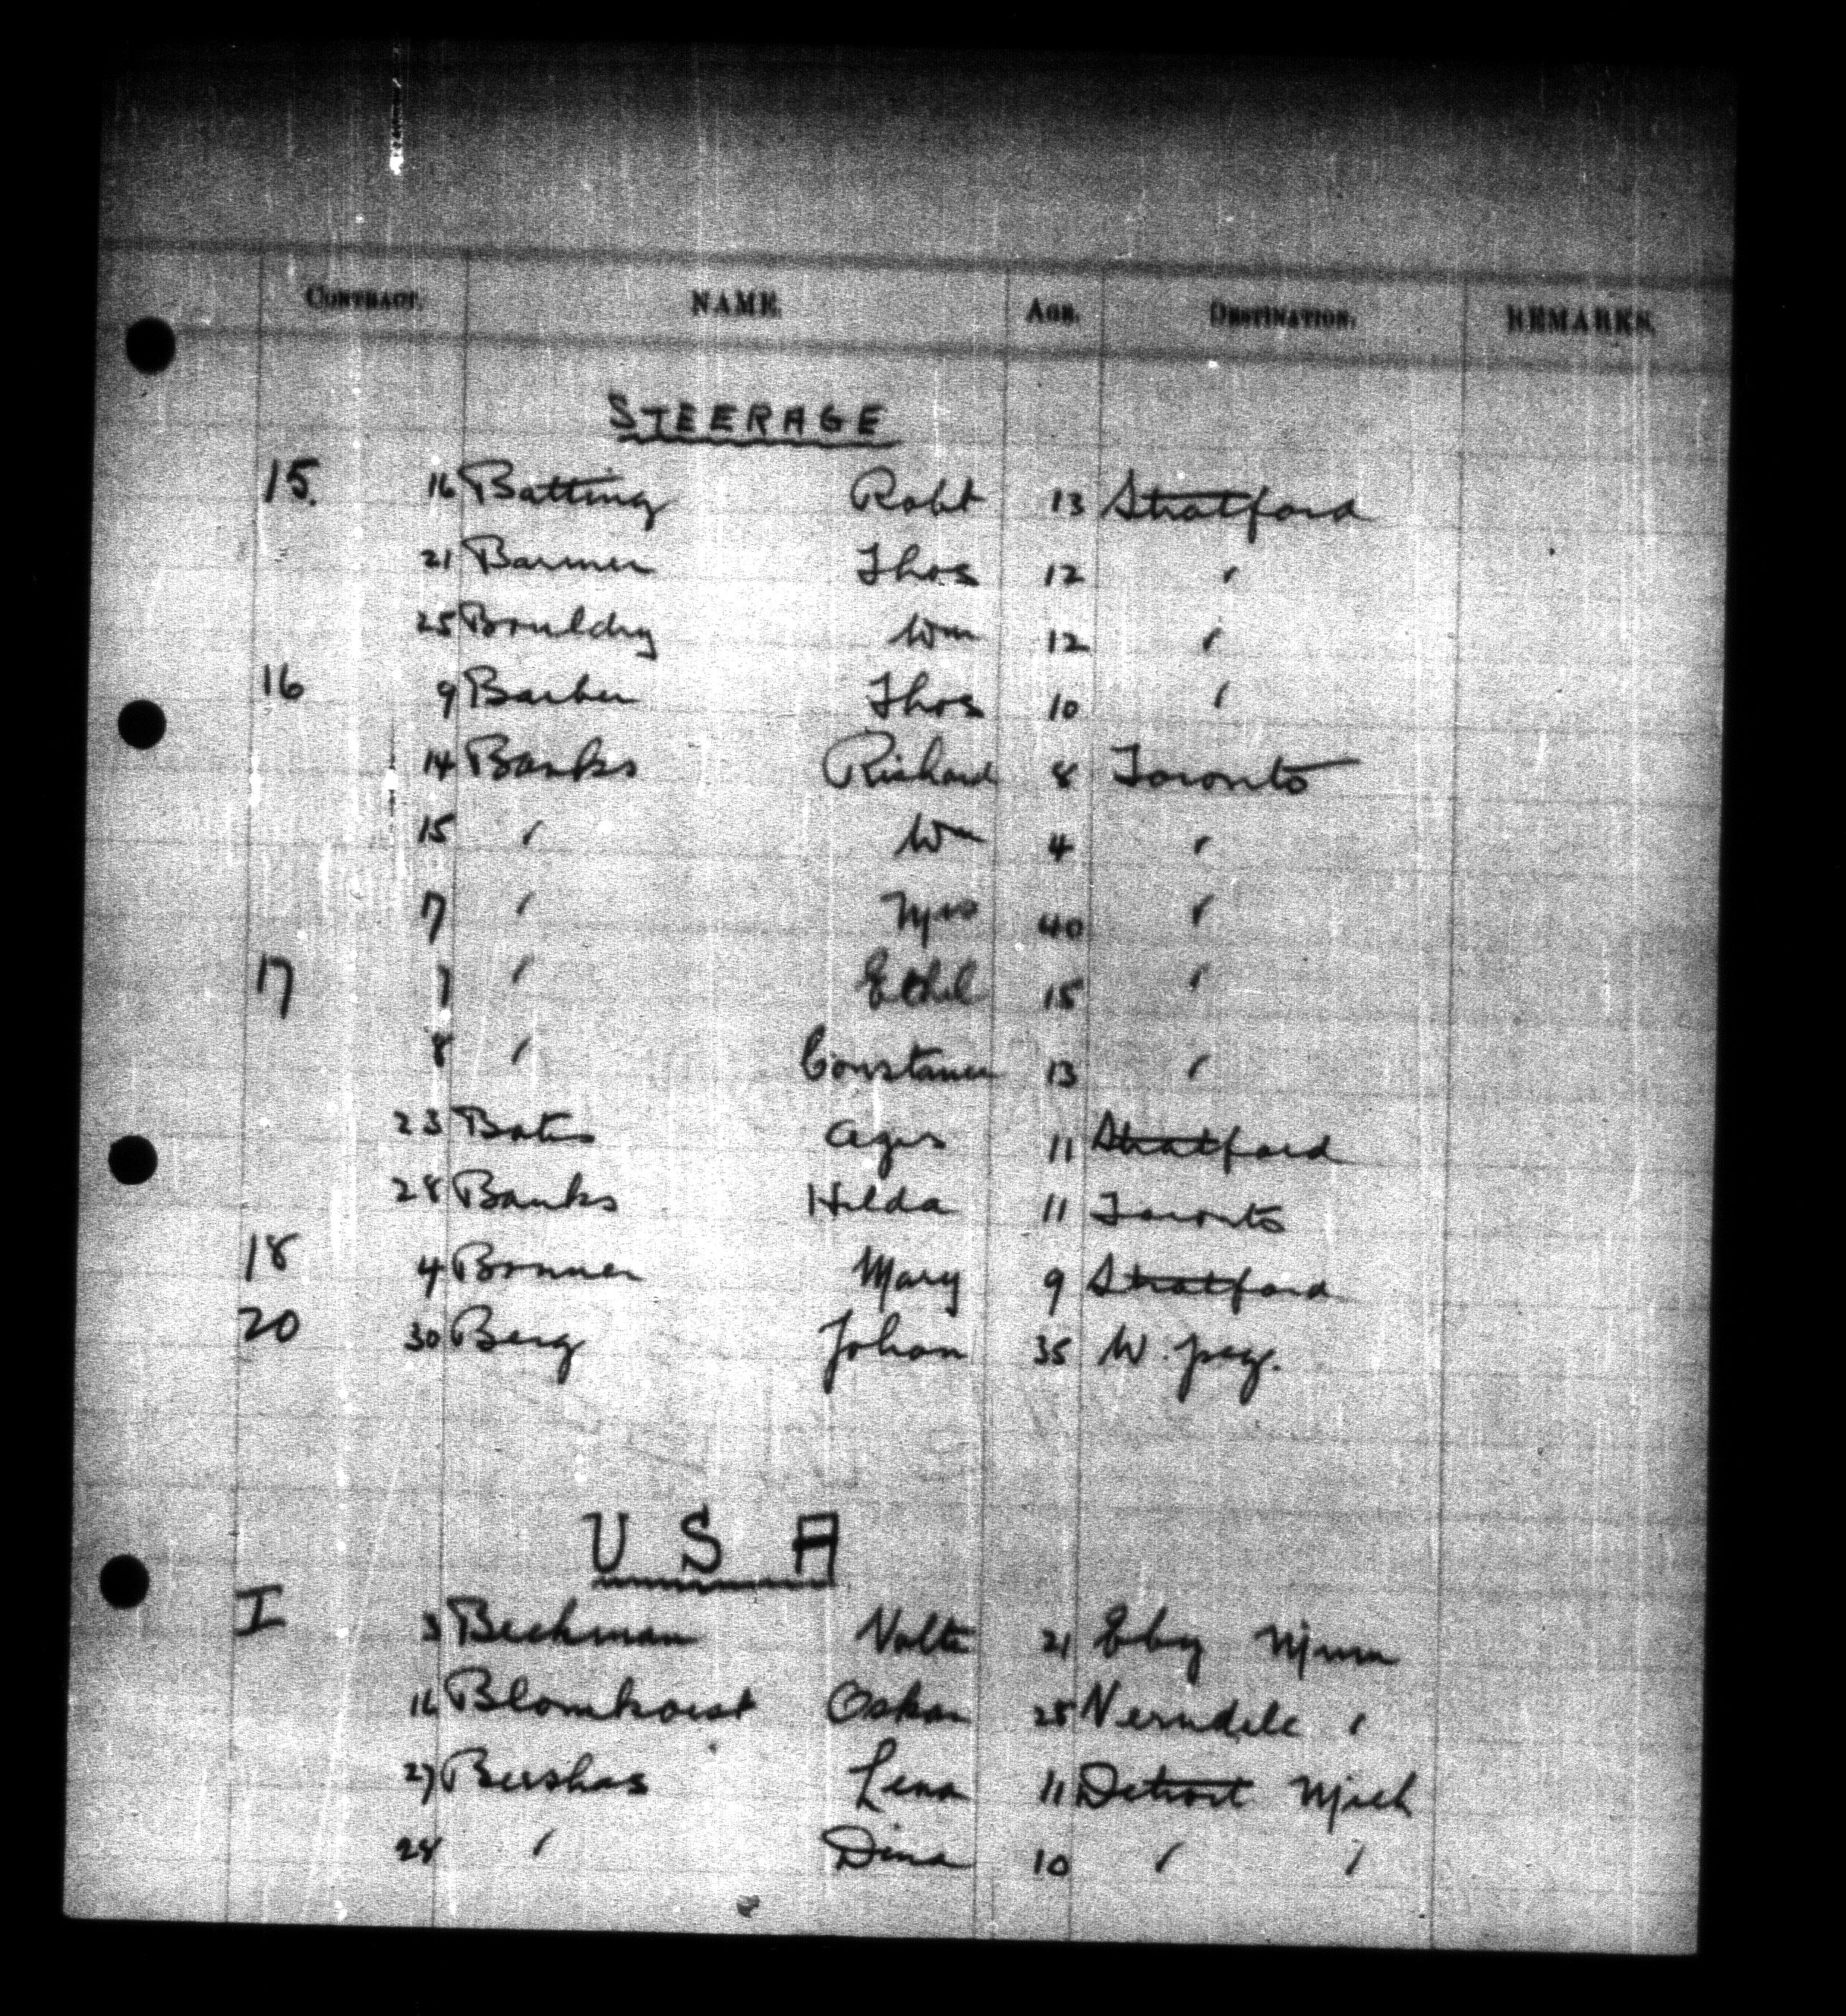 CONTRACT. NAME. AGE. DESTINATION. REMARKS.
STEERAGE
15. 16 Batting Robt 13 Stratford
21 Barmer Thos 12 "
25 Bouldry Wm 12 "
16 9 Barber Thos 10 "
14 Banks Richard 8 Toronto
15 " Wm 4 "
7 " Mrs 40 "
17 7 " Ethel 15 "
8 " Constance 13 "
23 Bates 11 Stratford
28 Banks Hilda 11 Toronto
18 4 Bonner Mary 9 Stratford
20 30 Berg Johan 35 W. peg.
U S A
I 3 Beckman 21 Minn
16 Oskar 25 "
27 Lena 11 Detroit Mich
28 " Dina 10 " "